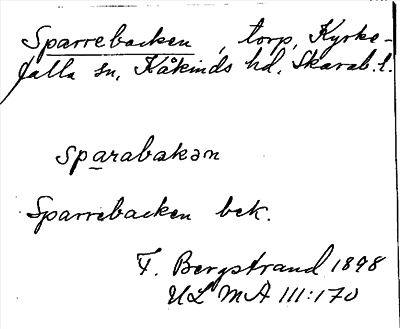 Sparrebacken, torp, Kyrke-
falla sn, Kåkinds hd. Skarab. l.
sparabakən
Sparrebacken bek.
F. Bergstrand 1898
ULMA 111:170